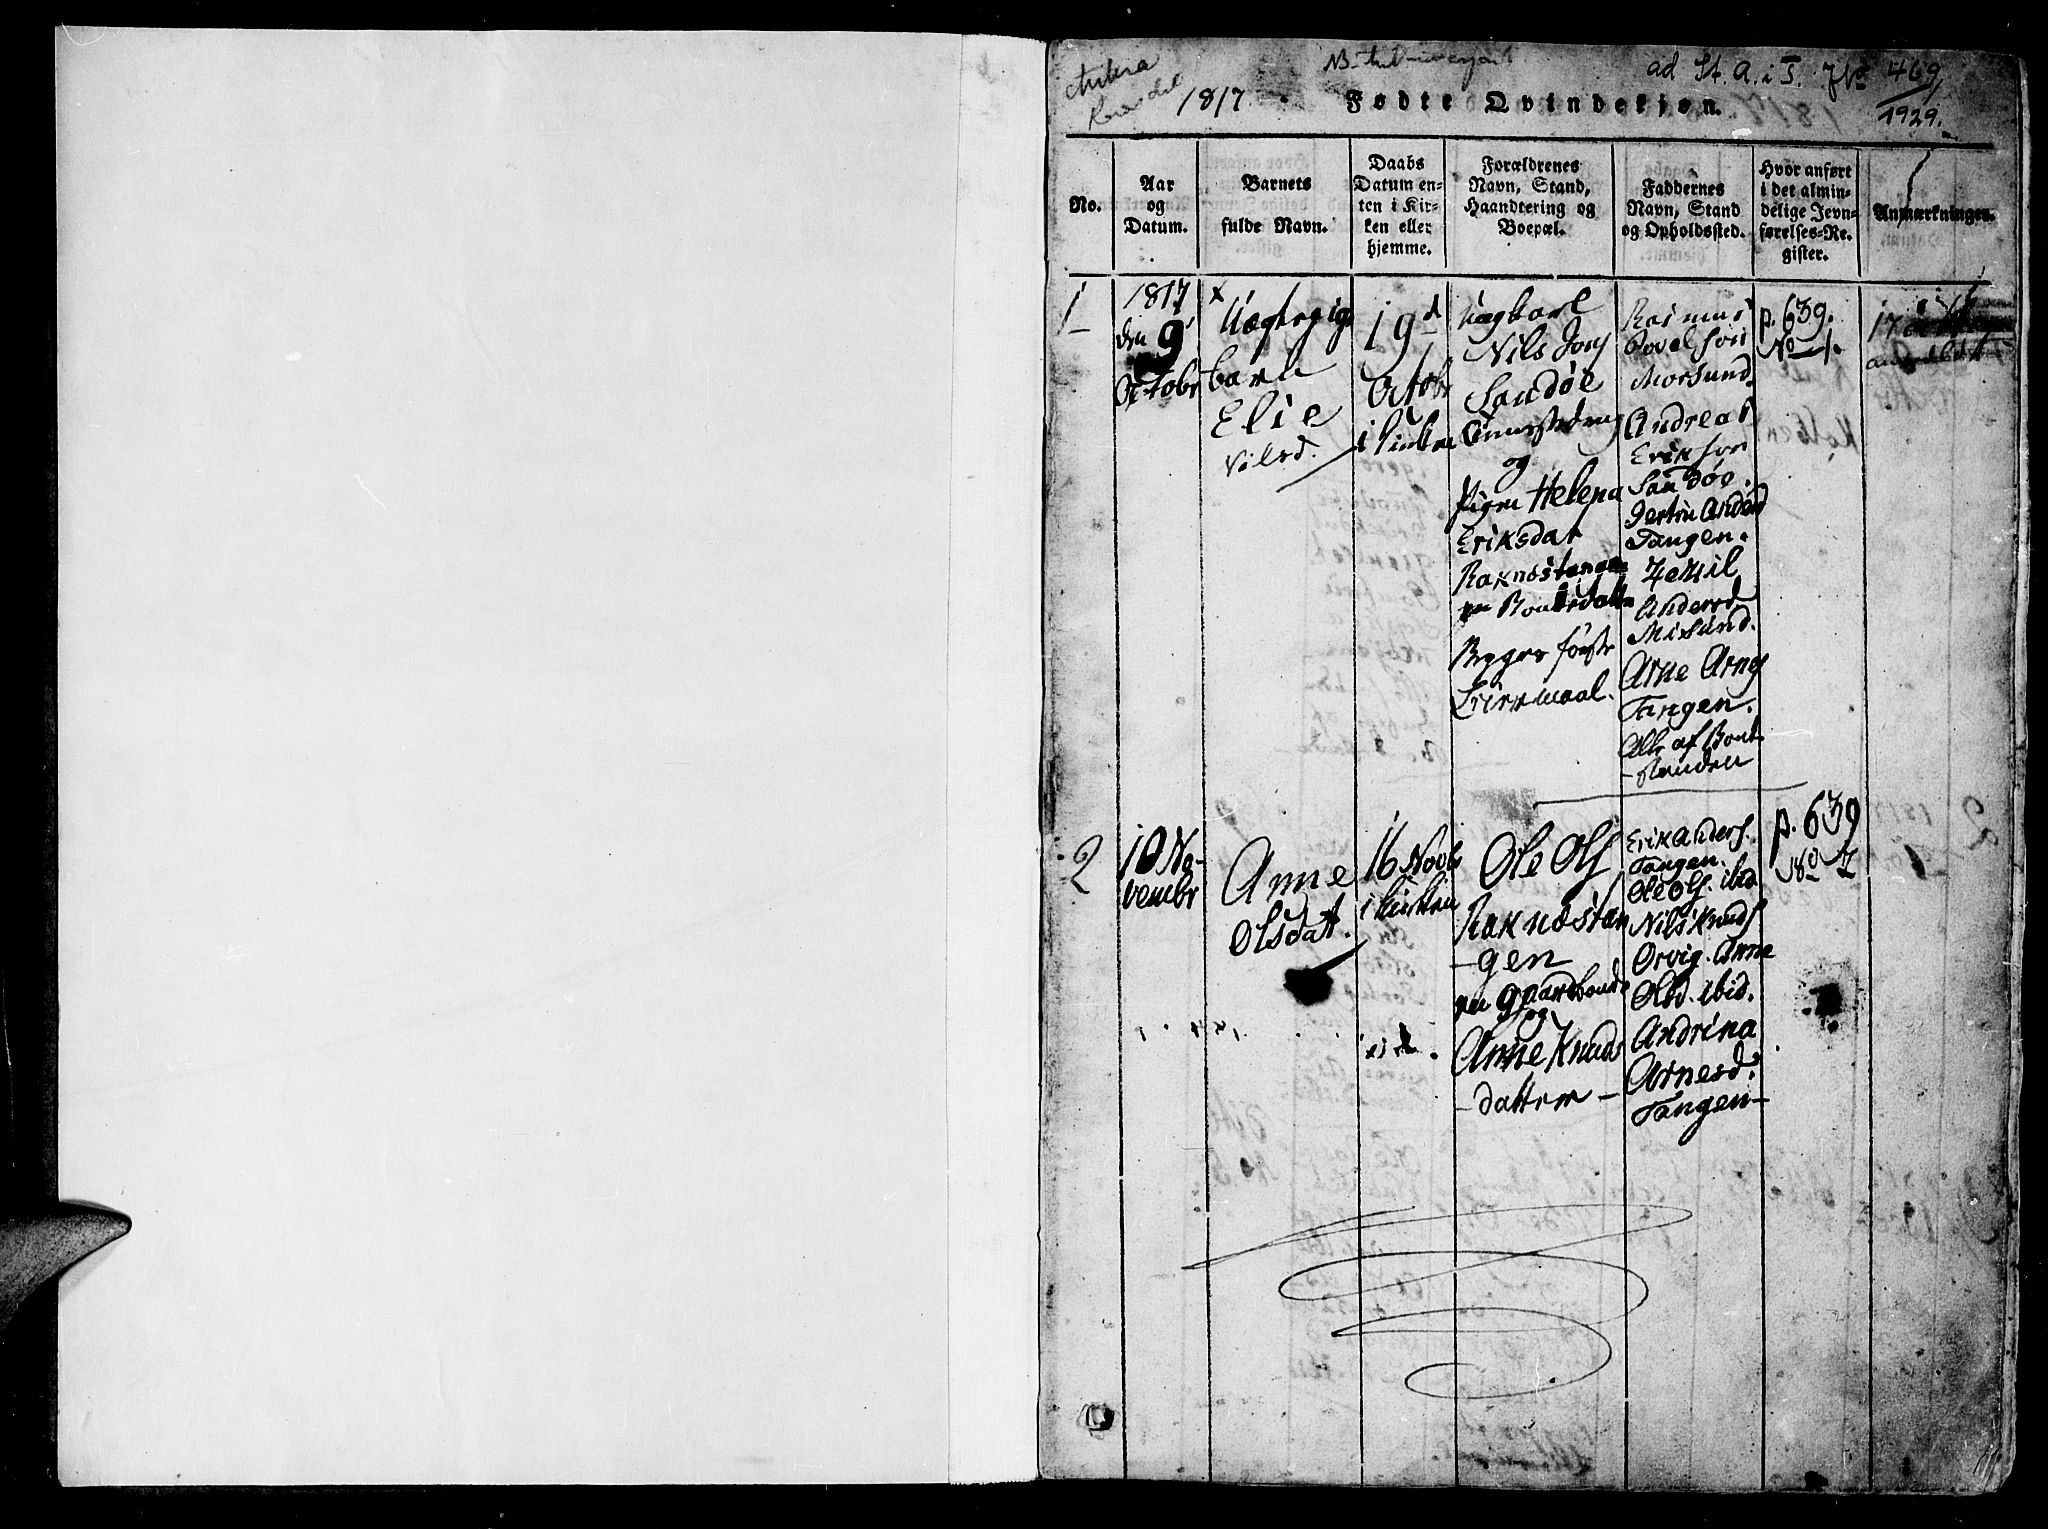 ad St. A. i T. No 469
1929.
1817. Fødte Qvindekjøn.
No.
Aar
og
Datum.
Barnets
fulde Navn.
Daabs
Datum en-
ten i Kir-
ken eller
hjemme.
Forældrenes
Navn, Stand,
Haandtering og
Boepæl.
Faddernes
Navn, Stand
og Opholdssted.
Hvor anført
i det almin-
delige Jevn-
førelses-Re-
gister.
Anmærkninger.
1
1817
den 9
October
Uægte pige
barn
Elie
Nilsd.
19d
Octobr
i kirken
Ungkarl
Nils Jons
Sandøe
og
Pigen Helena
Eriksdat
Raknestangen
Begges første
Leiermaal.
Rasmus
Povelson
Morsund.
Andreas
Erikson
Sandøe.
Gertru Andersd
Tangen.
Zezil
Andersd
Misund.
Arne Arnes
Tangen.
Alle af Bonde
-standen
p. 639.
No 1.
2
10 No-
vembr
Anne
Olsdat.
16 Novbr
i kirken
Ole Ols
Raknestan
-gen
en gaardbonde
og
Anne Knuds
-datter-
Erik Anders.
Tangen.
Ole Ols. ibid
Nils Knuds
Orvig. Anne
Olsd. ibid.
Andrina
Arnesd.
Tangen-
p. 639
No 2